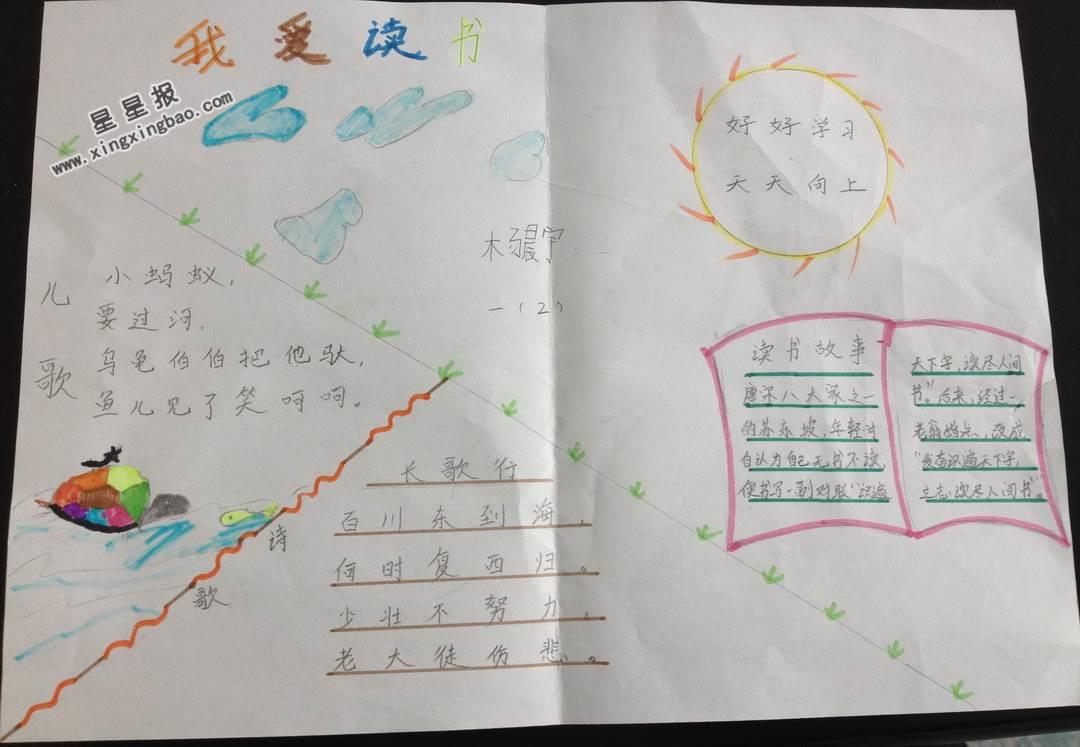 我爱读书
星星报
www.xingxingbao.com
好好学习
天天向上
杨晨宇
一(2)
儿歌
小蚂蚁,
要过河.
乌龟伯伯把他驮,
鱼儿见了笑呵呵。
诗歌
长歌行
百川东到海,
何时复西归。
少壮不努力,
老大徒伤悲。
读书故事
唐宋八大家之一
的苏东坡,年轻时
自认为自己无书不读,
便书写一副对联"识遍
天下字,读尽人间
书"。后来,经过一
老翁指点,改成
"发奋识遍天下字,
立志读尽人间书"。